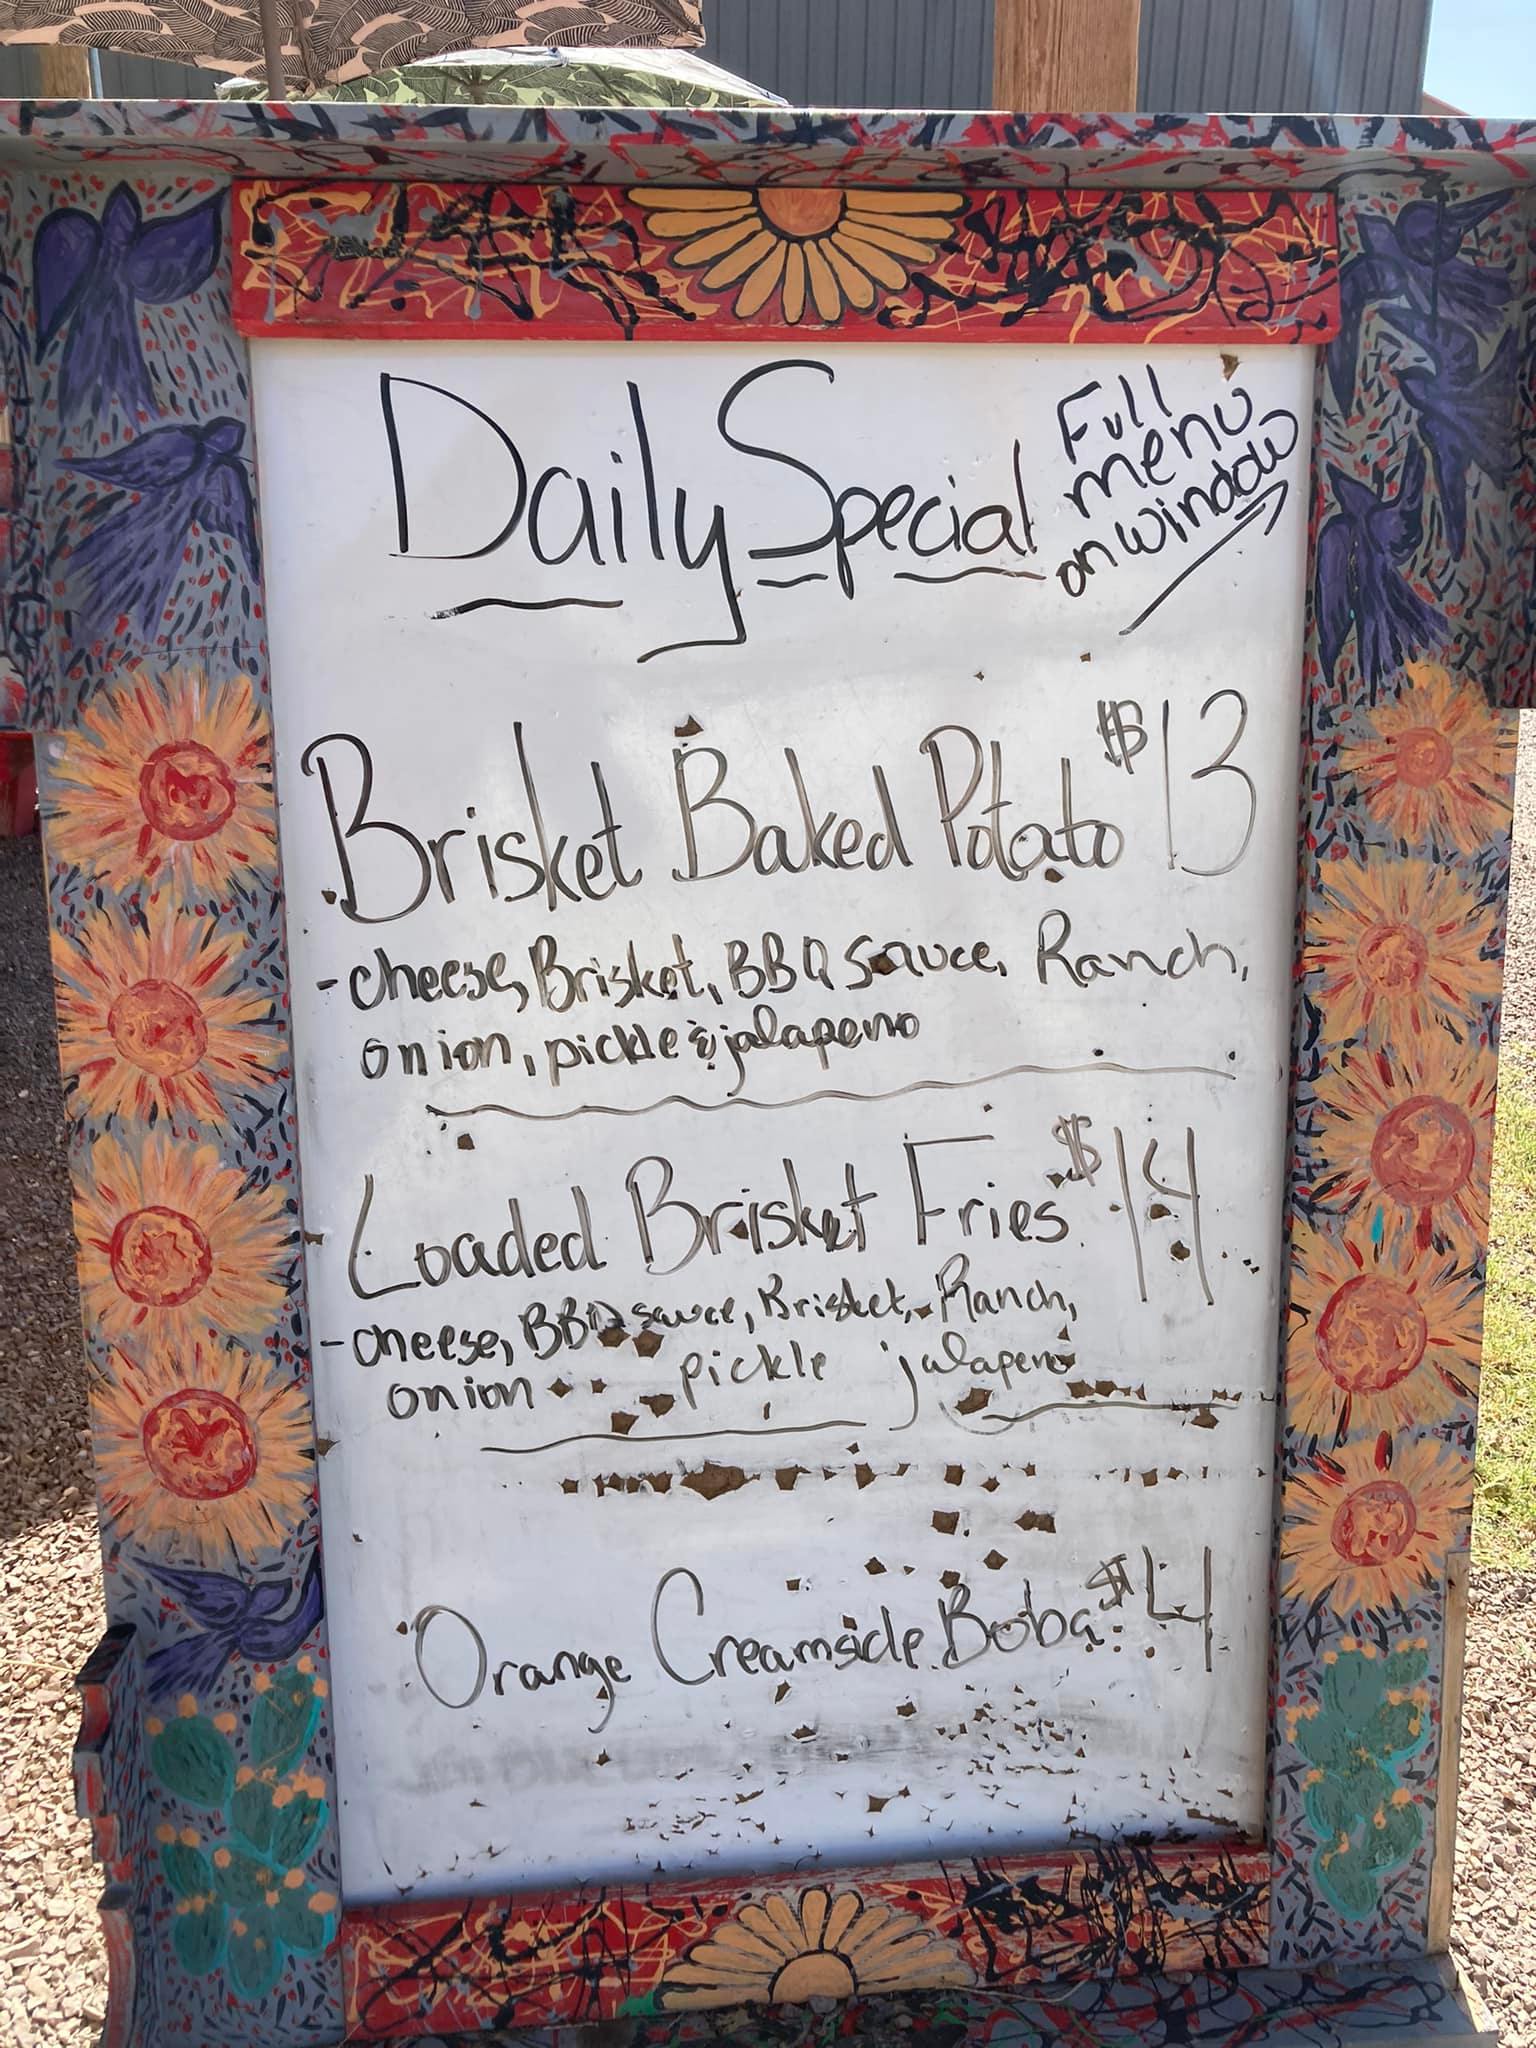 Daily Special
Full
menu
on window
Brisket Baked Potato $13
- cheese, Brisket, BBQ sauce, Ranch,
onion, pickle & jalapeno
Loaded Brisket Fries $14
- cheese, BBQ sauce, Brisket, Ranch,
onion pickle jalapeno
Orange Creamsicle Boba $4